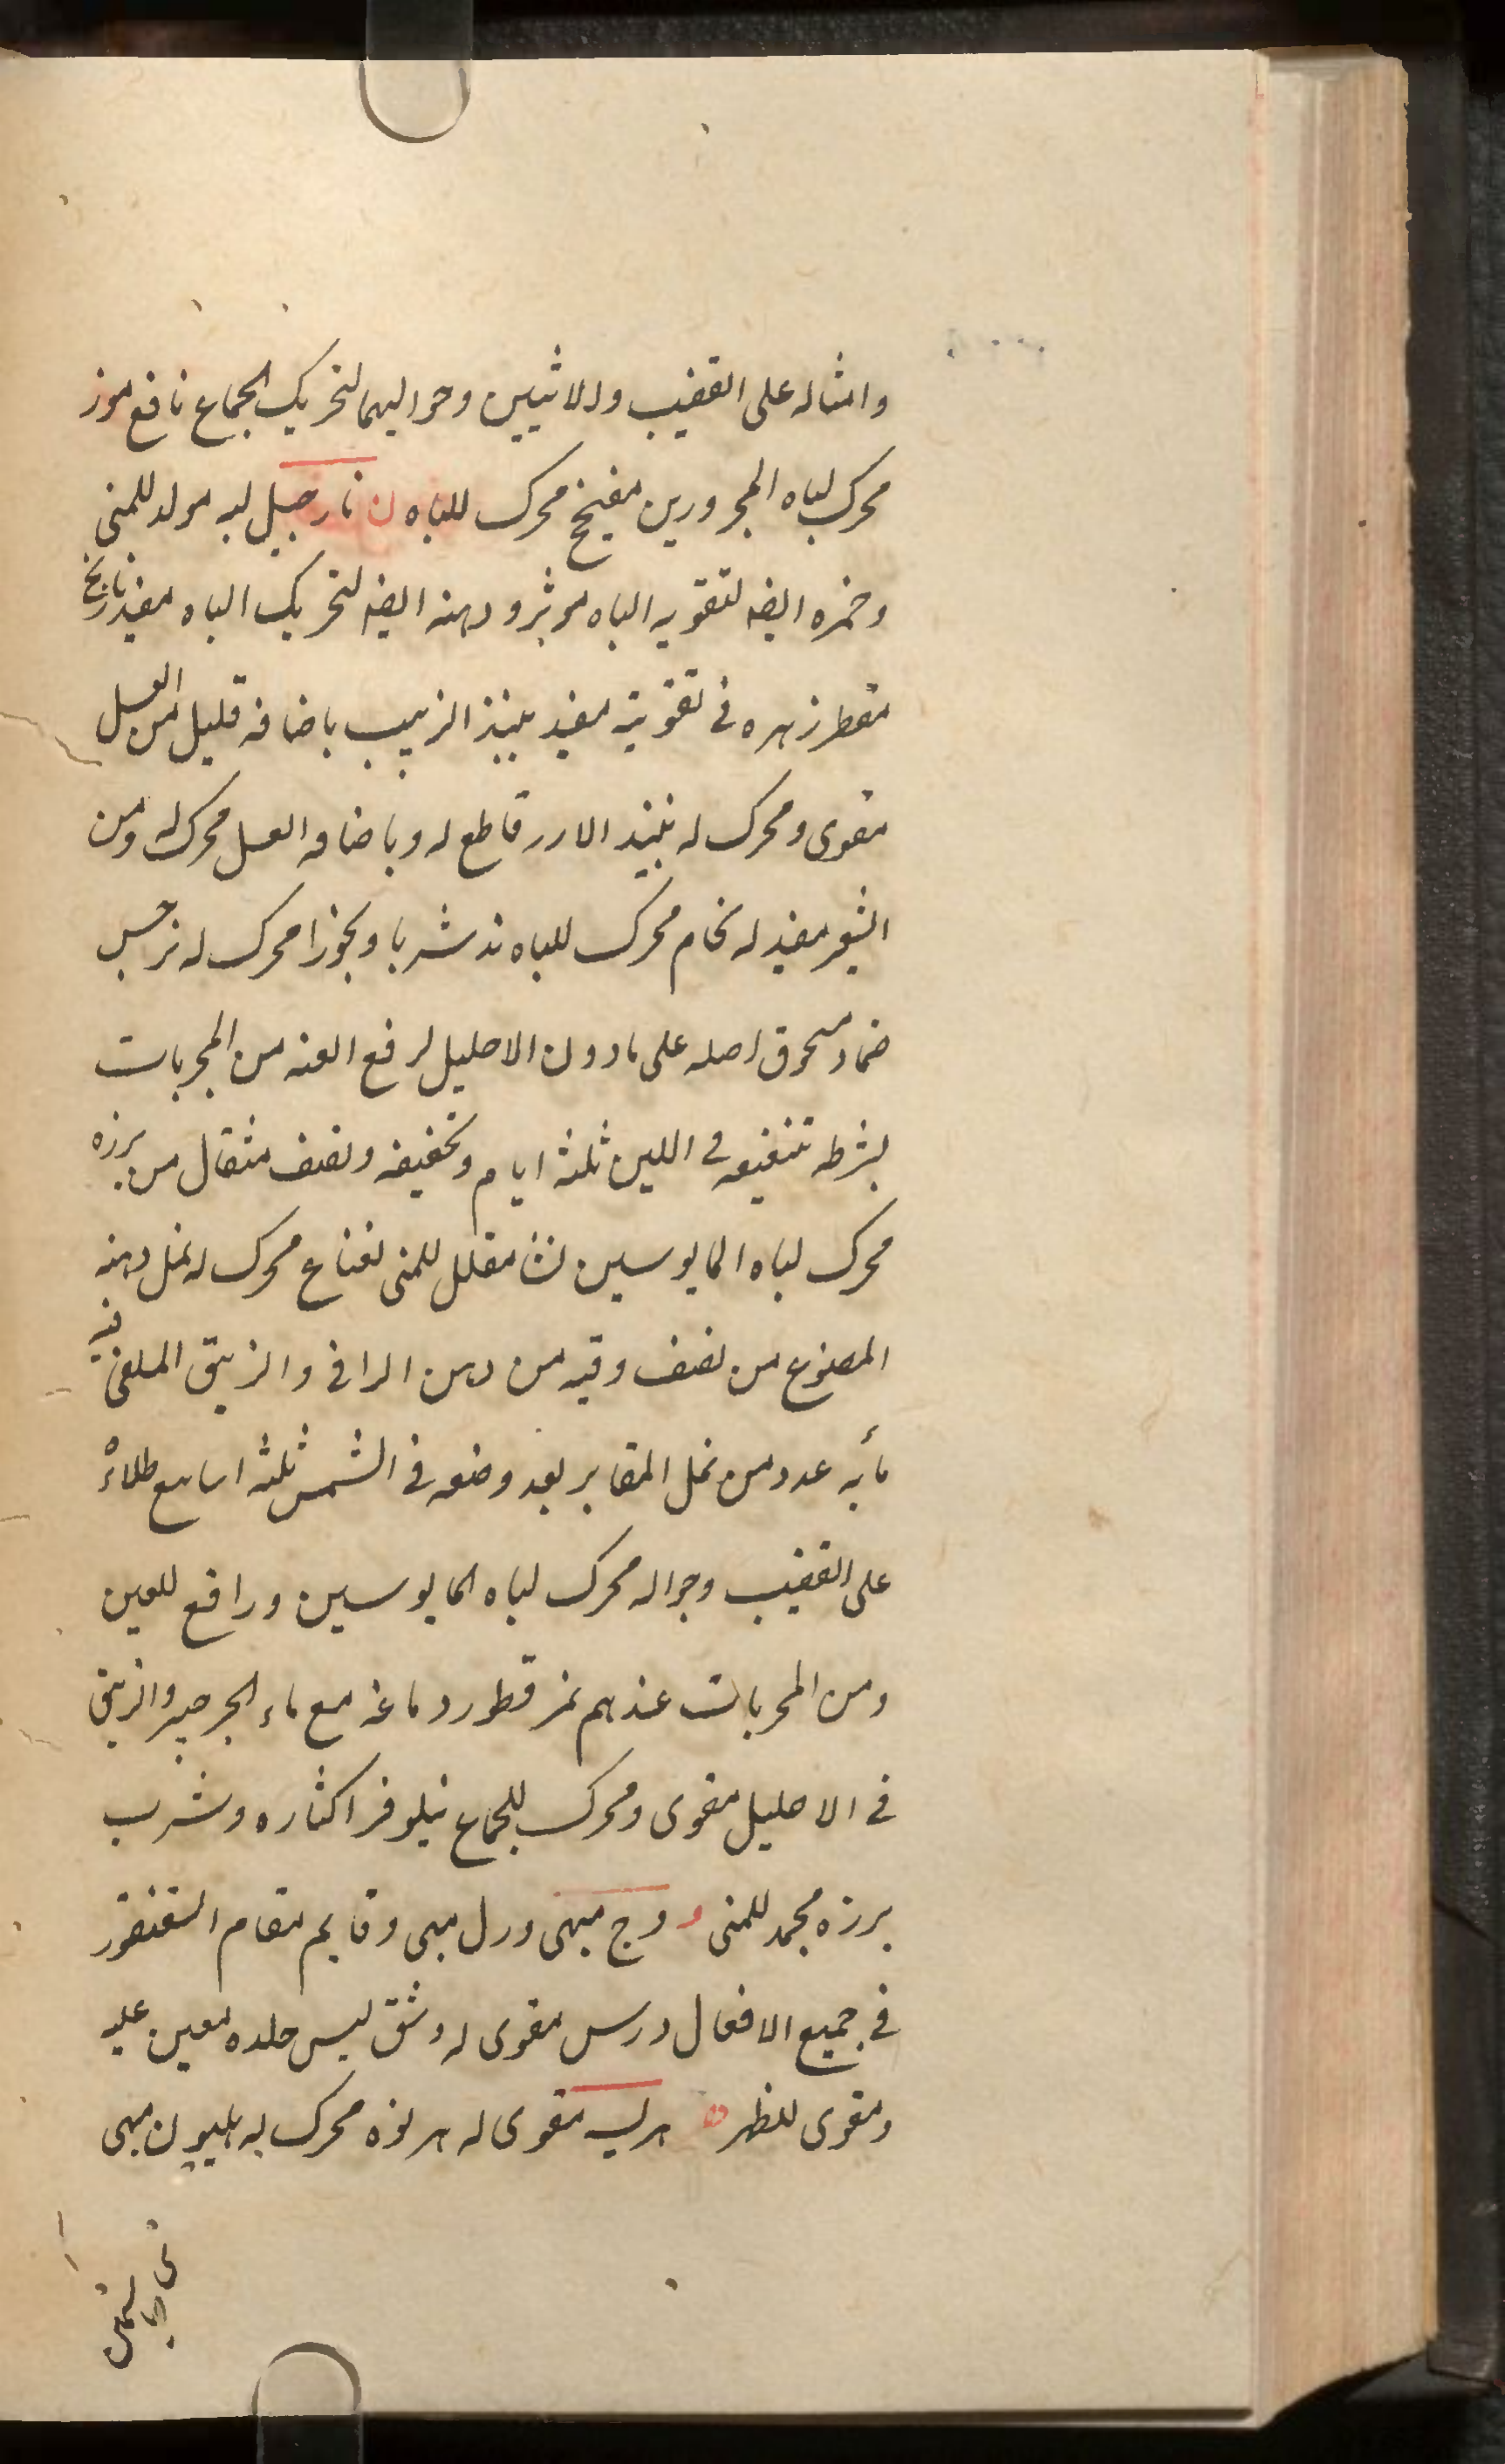 وامثاله على القضيب والانثيين وحواليهما لتحريك الجماع نافع موز
محرك لباه المحرورين ميفختج محرك للباه ن نارجيل لبه مولد للمنى
وخمره ايضه لتقويه الباه موثر ودهنه ايضه لتحريك الباه مفيد نارنج
مقطر زهره فى تقويته مفيد نبيذ الزبيب باضافه قليل من العسل
مقوى ومحرك له نبيذ الارز قاطع له وباضافه العسل محرك له ومن
الشعير مفيد له نخام محرك للباه ند شربا وبخورا محرك له نرجس
ضماد مسحوق اصله على مادون الاحليل لرفع العنه من المجربات
بشرطه تنقيعه فى اللبن ثلثه ايام وتجفيفه ونصف مثقال من بزره
محرك لباه المايوسين نشا مقلل للمنى نعناع محرك له نمل دهنه
المصنوع من نصف وقيه من دهن الرازقى والزيبق الملقى فيه
مأيه عدد من نمل المقابر بعد وضعه فى الشمس ثلثه اسابيع طلاءً
على القضيب وحواله محرك لباه المايوسين ورافع للعنين
ومن المجربات عندهم نمر قطور دماغه مع ماء الجرجير والزيبق
فى الاحليل مقوى ومحرك للجماع نيلوفر اكثاره وشرب
بزره مجمد للمنى و وج مبهى ورل مبهى وقايم مقام السقنقور
فى جميع الافعال ورس مقوى له وشق لبس جلده معين عليه
ومقوى للظهر ه هريسه مقوى له هرنوه محرك له هليون مبهى